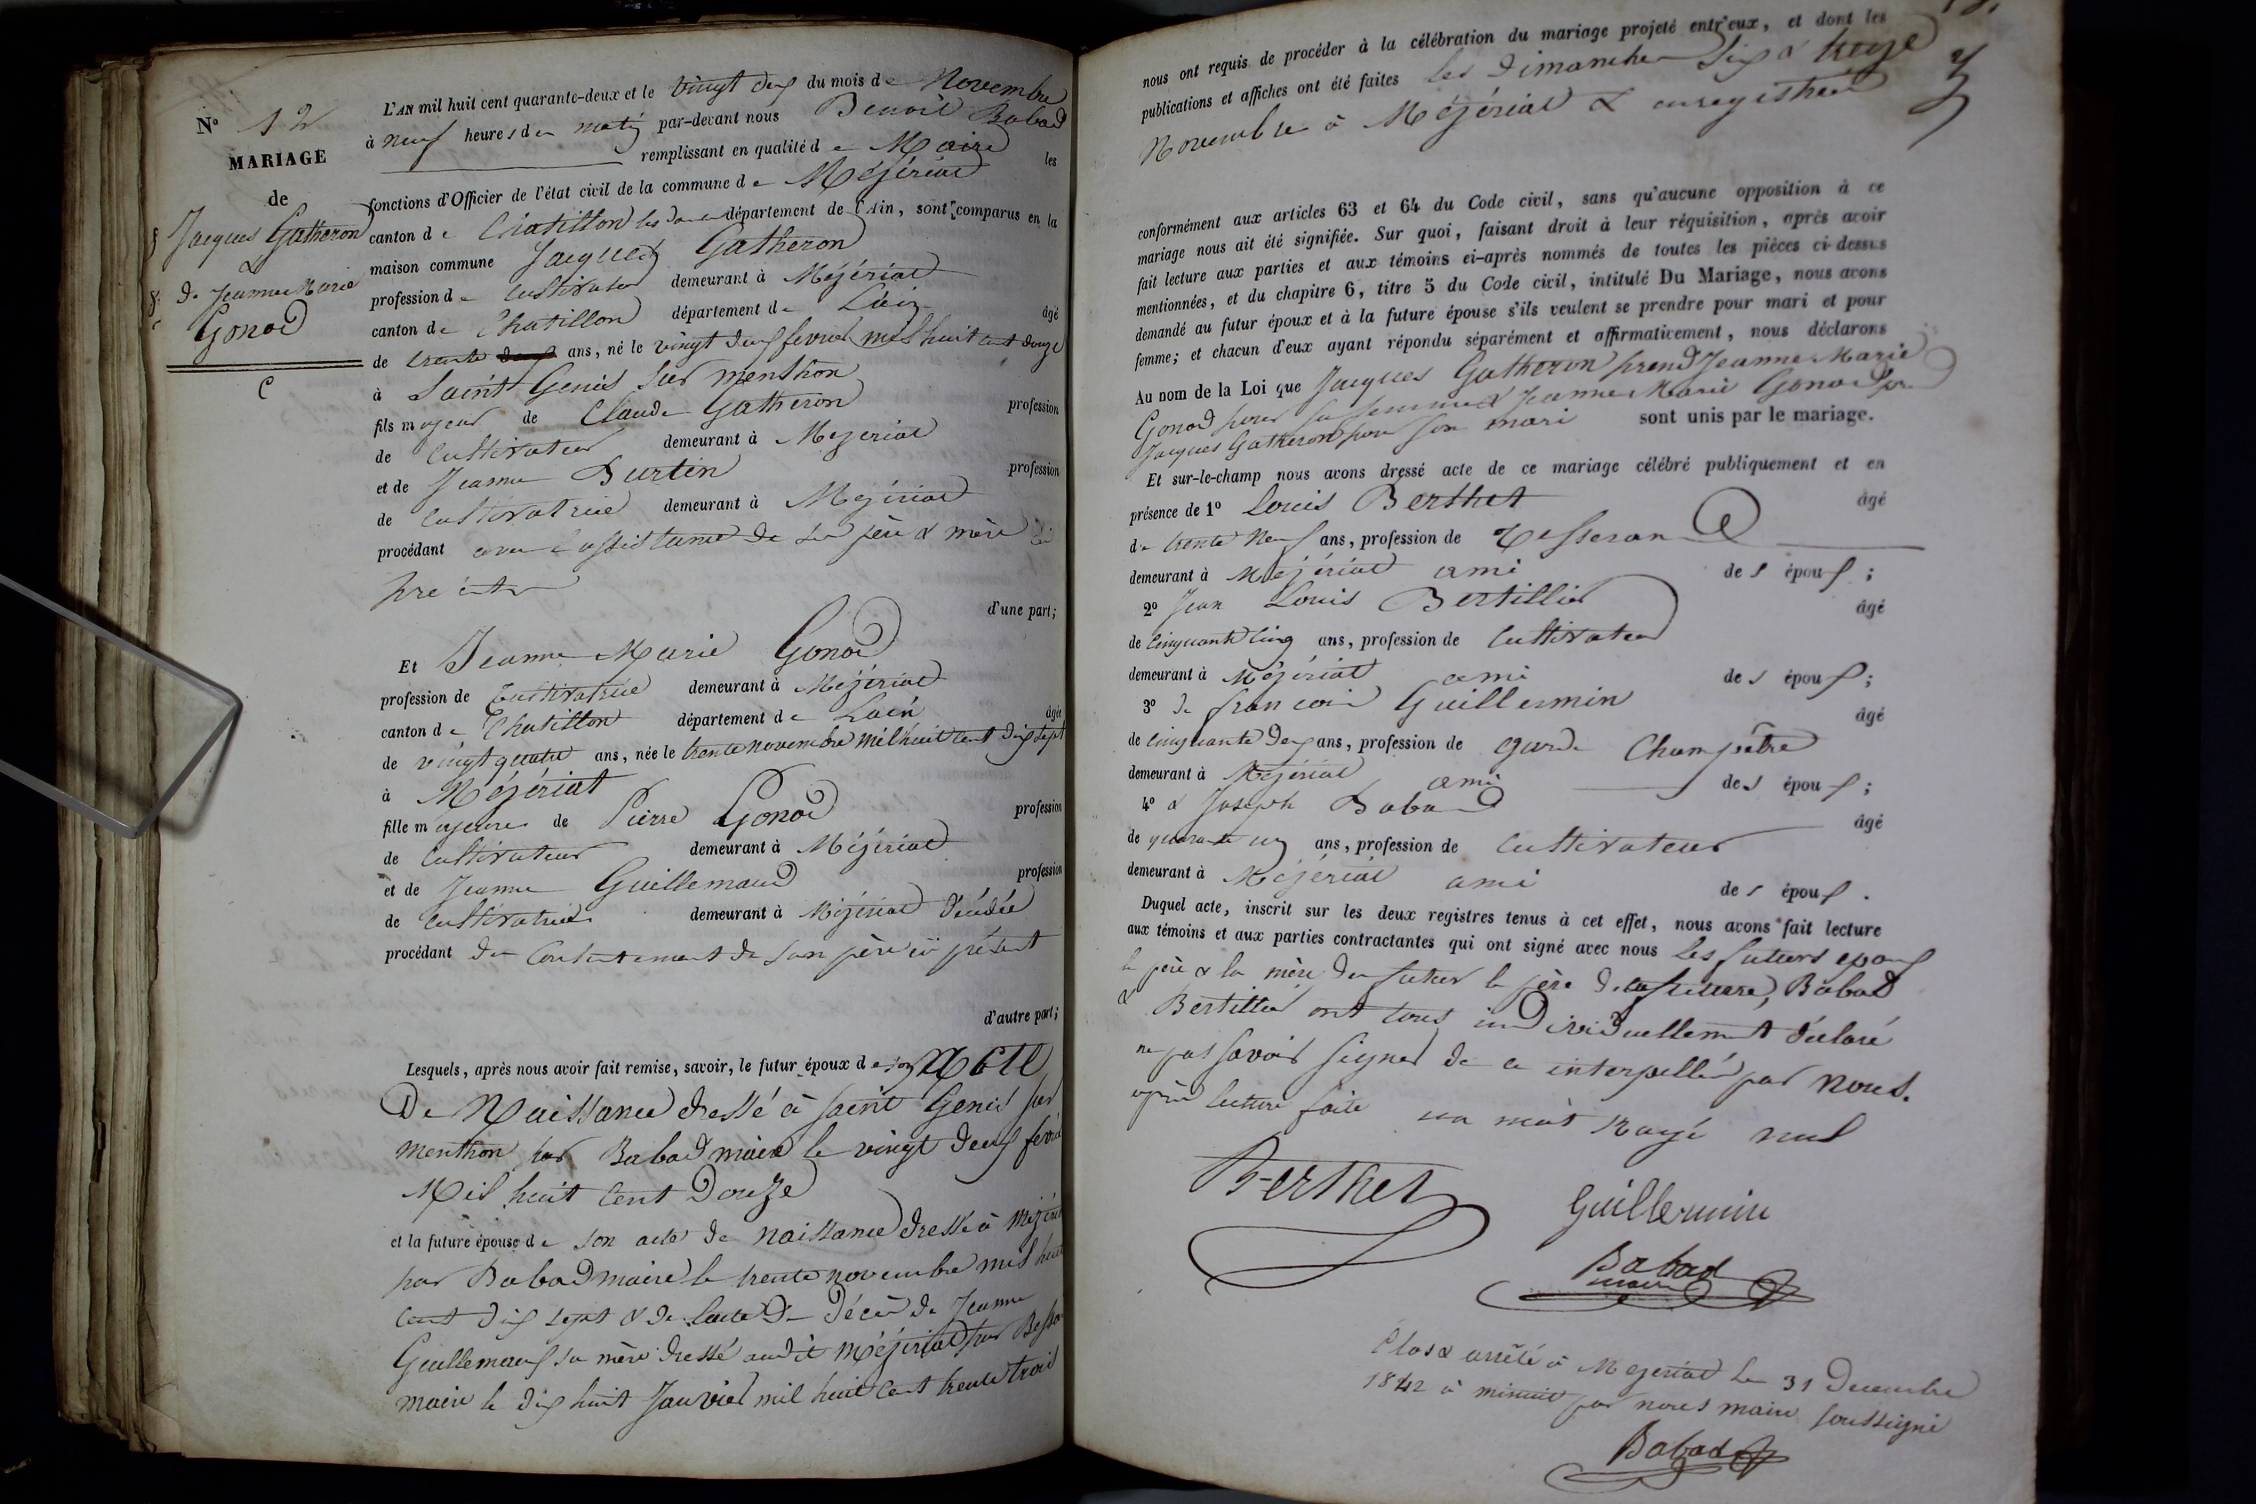 N° 12
MARIAGE
de
Jacques Gatheron
&
de Jeanne Marie
Gonod
L'AN mil huit cent quarante-deux et le vingt deux du mois de Novembre
à neuf heures du matin par-devant nous Benoit Babad
remplissant en qualité de Maire les
fonctions d'Officier de l'état civil de la commune de Mézériat
canton de Chatillon les dombes département de l'Ain, sont comparus en la
maison commune Jacques Gatheron
profession de cultivateur demeurant à Mézériat
canton de Chatillon département de L'ain âgé
de trente ans, né le vingt deux fevrier mil huit cent douze
à Saint Genis sur menthon
fils majeur de Claude Gatheron profession
de cultivateur demeurant à Mezeriat
et de Jeanne Burtin profession
de cultivatrice demeurant à Mezériat
procédant avec l'assistance de ses père & mère ici
présents
d'une part;
Et Jeanne Marie Gonod
profession de Cultivatrice demeurant à Mézériat
canton de Chatillon département de L'ain âgée
de vingt quatre ans, née le trente novembre mil huit cent dix sept
à Mézériat
fille majeure de Pierre Gonod profession
de cultivateur demeurant à Mézériat
et de Jeanne Guillemaud profession
de cultivatrice demeurant à Mézériat décédée
procédant du Consentement de son père ici présent
d'autre part;
Lesquels, après nous avoir fait remise, savoir, le futur époux de son acte
De Naissance dressé à saint Genis sur
menthon par Babad maire le vingt deux fevrier
Mil huit cent Douze
et la future épouse de son acte de naissance dressé à Mézériat
par Babad maire le trente novembre mil huit
cent dix sept & de l'acte de décès de Jeanne
Guillemaud sa mère dressé audit Mézériat par
maire le dix huit Janvier mil huit cent trente trois
nous ont requis de procéder à la célébration du mariage projeté entr'eux, et dont les
publications et affiches ont été faites les dimanches Six & treize
Novembre à Mézériat & enregistrées
conformément aux articles 63 et 64 du Code civil, sans qu'aucune opposition à ce
mariage nous ait été signifiée. Sur quoi, faisant droit à leur réquisition, après avoir
fait lecture aux parties et aux témoins ci-après nommés de toutes les pièces ci-dessus
mentionnées, et du chapitre 6, titre 5 du Code civil, intitulé Du Mariage, nous avons
demandé au futur époux et à la future épouse s'ils veulent se prendre pour mari et pour
femme; et chacun d'eux ayant répondu séparément et affirmativement, nous déclarons
Au nom de la Loi que Jacques Gatheron prend Jeanne Marie
Gonod pour sa femme & Jeanne Marie Gonod prend
Jacques Gatheron pour son mari sont unis par le mariage.
Et sur-le-champ nous avons dressé acte de ce mariage célébré publiquement et en
présence de 1° Louis Berthet âgé
de trente neuf ans, profession de Tisseran
demeurant à Mézériat ami des époux;
2° Jean Louis Bertillier âgé
de cinquante cinq ans, profession de cultivateur
demeurant à Mézériat ami des époux;
3° de francois Guillermin âgé
de cinquante deux ans, profession de garde Champêtre
demeurant à Mézériat ami des époux;
4° & Joseph Babad âgé
de quarante un ans, profession de cultivateur
demeurant à Mézériat ami des époux.
Duquel acte, inscrit sur les deux registres tenus à cet effet, nous avons fait lecture
aux témoins et aux parties contractantes qui ont signé avec nous Les futurs epoux
le père & la mère du futur le père de la future, Babad
& Bertillier ont tous individuellement déclaré
ne pas savoir signer de ce interpellés par nous.
après lecture faite un mot rayé nul
Berthet
Guillermin
Babad
maire
Clos & arrêté à Mezériat le 31 Decembre
1842 à minuit par nous maire soussigné
Babad